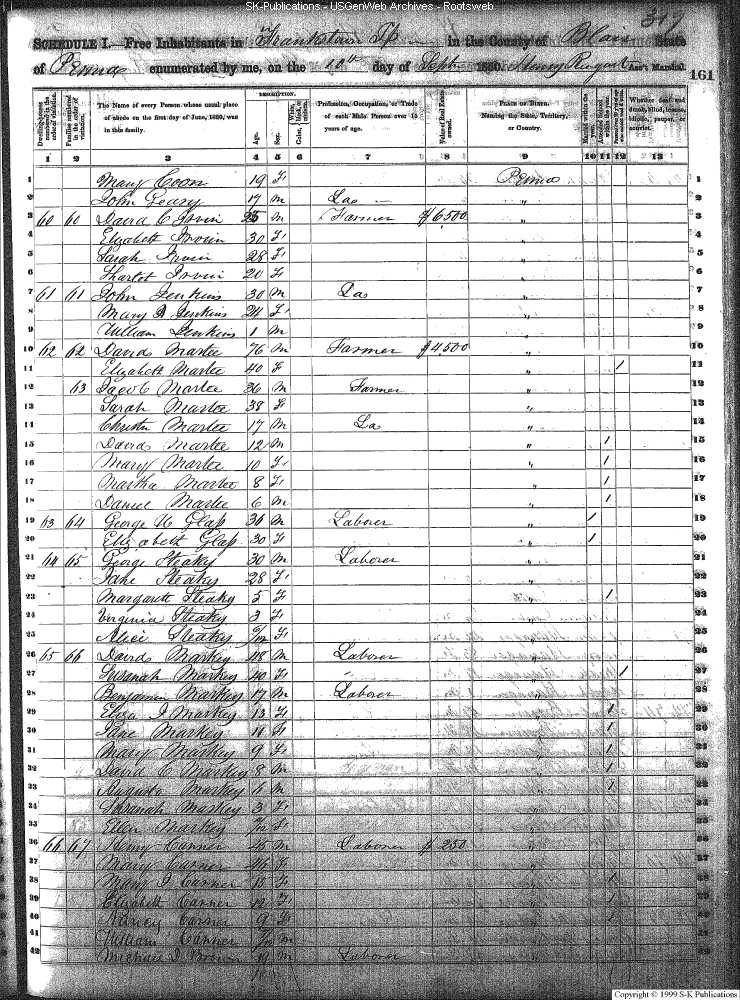 SK-Publications - USGenWeb Archives - Rootsweb
317
SCHEDULE I.—Free Inhabitants in Frankstown Tp in the County of Blair State
of Penna enumerated by me, on the 10th day of Septr 1850. Henry Ass't Marshal. 161
Dwelling-houses numbered in the order of visitation. Families numbered in the order of visitation. The Name of every Person whose usual place of abode on the first day of June, 1850, was in this family. DESCRIPTION. Age. Sex. White, black, or mulatto. Color, Profession, Occupation, or Trade of each Male Person over 15 years of age. Value of Real Estate owned. PLACE OF BIRTH. Naming the State, Territory, or Country. Married within the year. Attended School within the year. Whether deaf and dumb, blind, insane, idiotic, pauper, or convict.
1 2 3 4 5 6 7 8 9 10 11 12 13
1 Mary Coon 19 F Penna 1
2 John Geary 17 M La " 2
3 60 60 David C Irvin M Farmer $6500 " 3
4 Elizabeth Irvin 30 F " 4
5 Sarah Irvin 28 F " 5
6 Sharlot Irvin 20 F " 6
7 61 61 John Jenkins 30 M La " 7
8 Mary Jenkins 24 F " 8
9 William Jenkins 1 M " 9
10 62 62 David Martee 76 M Farmer $4500 " 10
11 Elizabeth Martee 40 F " 1 11
12 63 Jacob Martee 36 M Farmer " 12
13 Sarah Martee 38 F " 13
14 Christn Martee 17 M La " 14
15 David Martee 12 M " 1 15
16 Mary Martee 10 F " 1 16
17 Martha Martee 8 F " 1 17
18 Daniel Martee 6 M " 1 18
19 63 64 George Glass 36 M Laborer " 1 19
20 Elizabeth Glass 30 F " 1 20
21 64 65 George Steaky 30 M Laborer " 21
22 Jane Steaky 28 F " 22
23 Margarett Steaky 5 F " 1 23
24 Virginia Steaky 3 F " 24
25 Alice Steaky F " 25
26 65 66 David Markey 48 M Laborer " 26
27 Susanah Markey 40 F " 1 27
28 Benjamin Markey 17 M Laborer " 28
29 Eliza J Markey 13 F " 1 29
30 Jane Markey 11 F " 1 30
31 Mary Markey 9 F " 1 31
32 David C Markey 8 M " 1 32
33 Augusta Markey 6 M " 1 33
34 Susanah Markey 3 F " 34
35 Ellen Markey F " 35
36 66 67 Henry Canner 45 M Laborer $250 " 36
37 Mary Canner F " 37
38 Mary J Canner 13 F " 1 38
39 Elizabeth Canner 12 F " 1 39
40 Nancy Canner 9 F " 1 40
41 William Canner M " 41
42 Michael Brown 19 M Laborer " 42
Copyright © 1999 S-K Publications